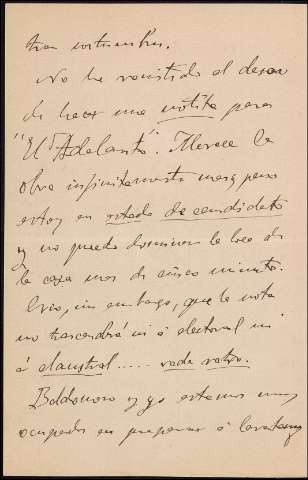 tran costumbres.
No he resistido al deseo
de hacer una notita para
"El Adelanto". Merece la
obra infinitamente mas, pero
estoy en estado de candidato
y no puedo dominar la loca de
la casa mas de cinco minutos.
Creo, sin embargo, que la nota
no trascenderá ni á electoral ni
á claustral..... vade retro.
y yo estamos muy
ocupados en preparar á